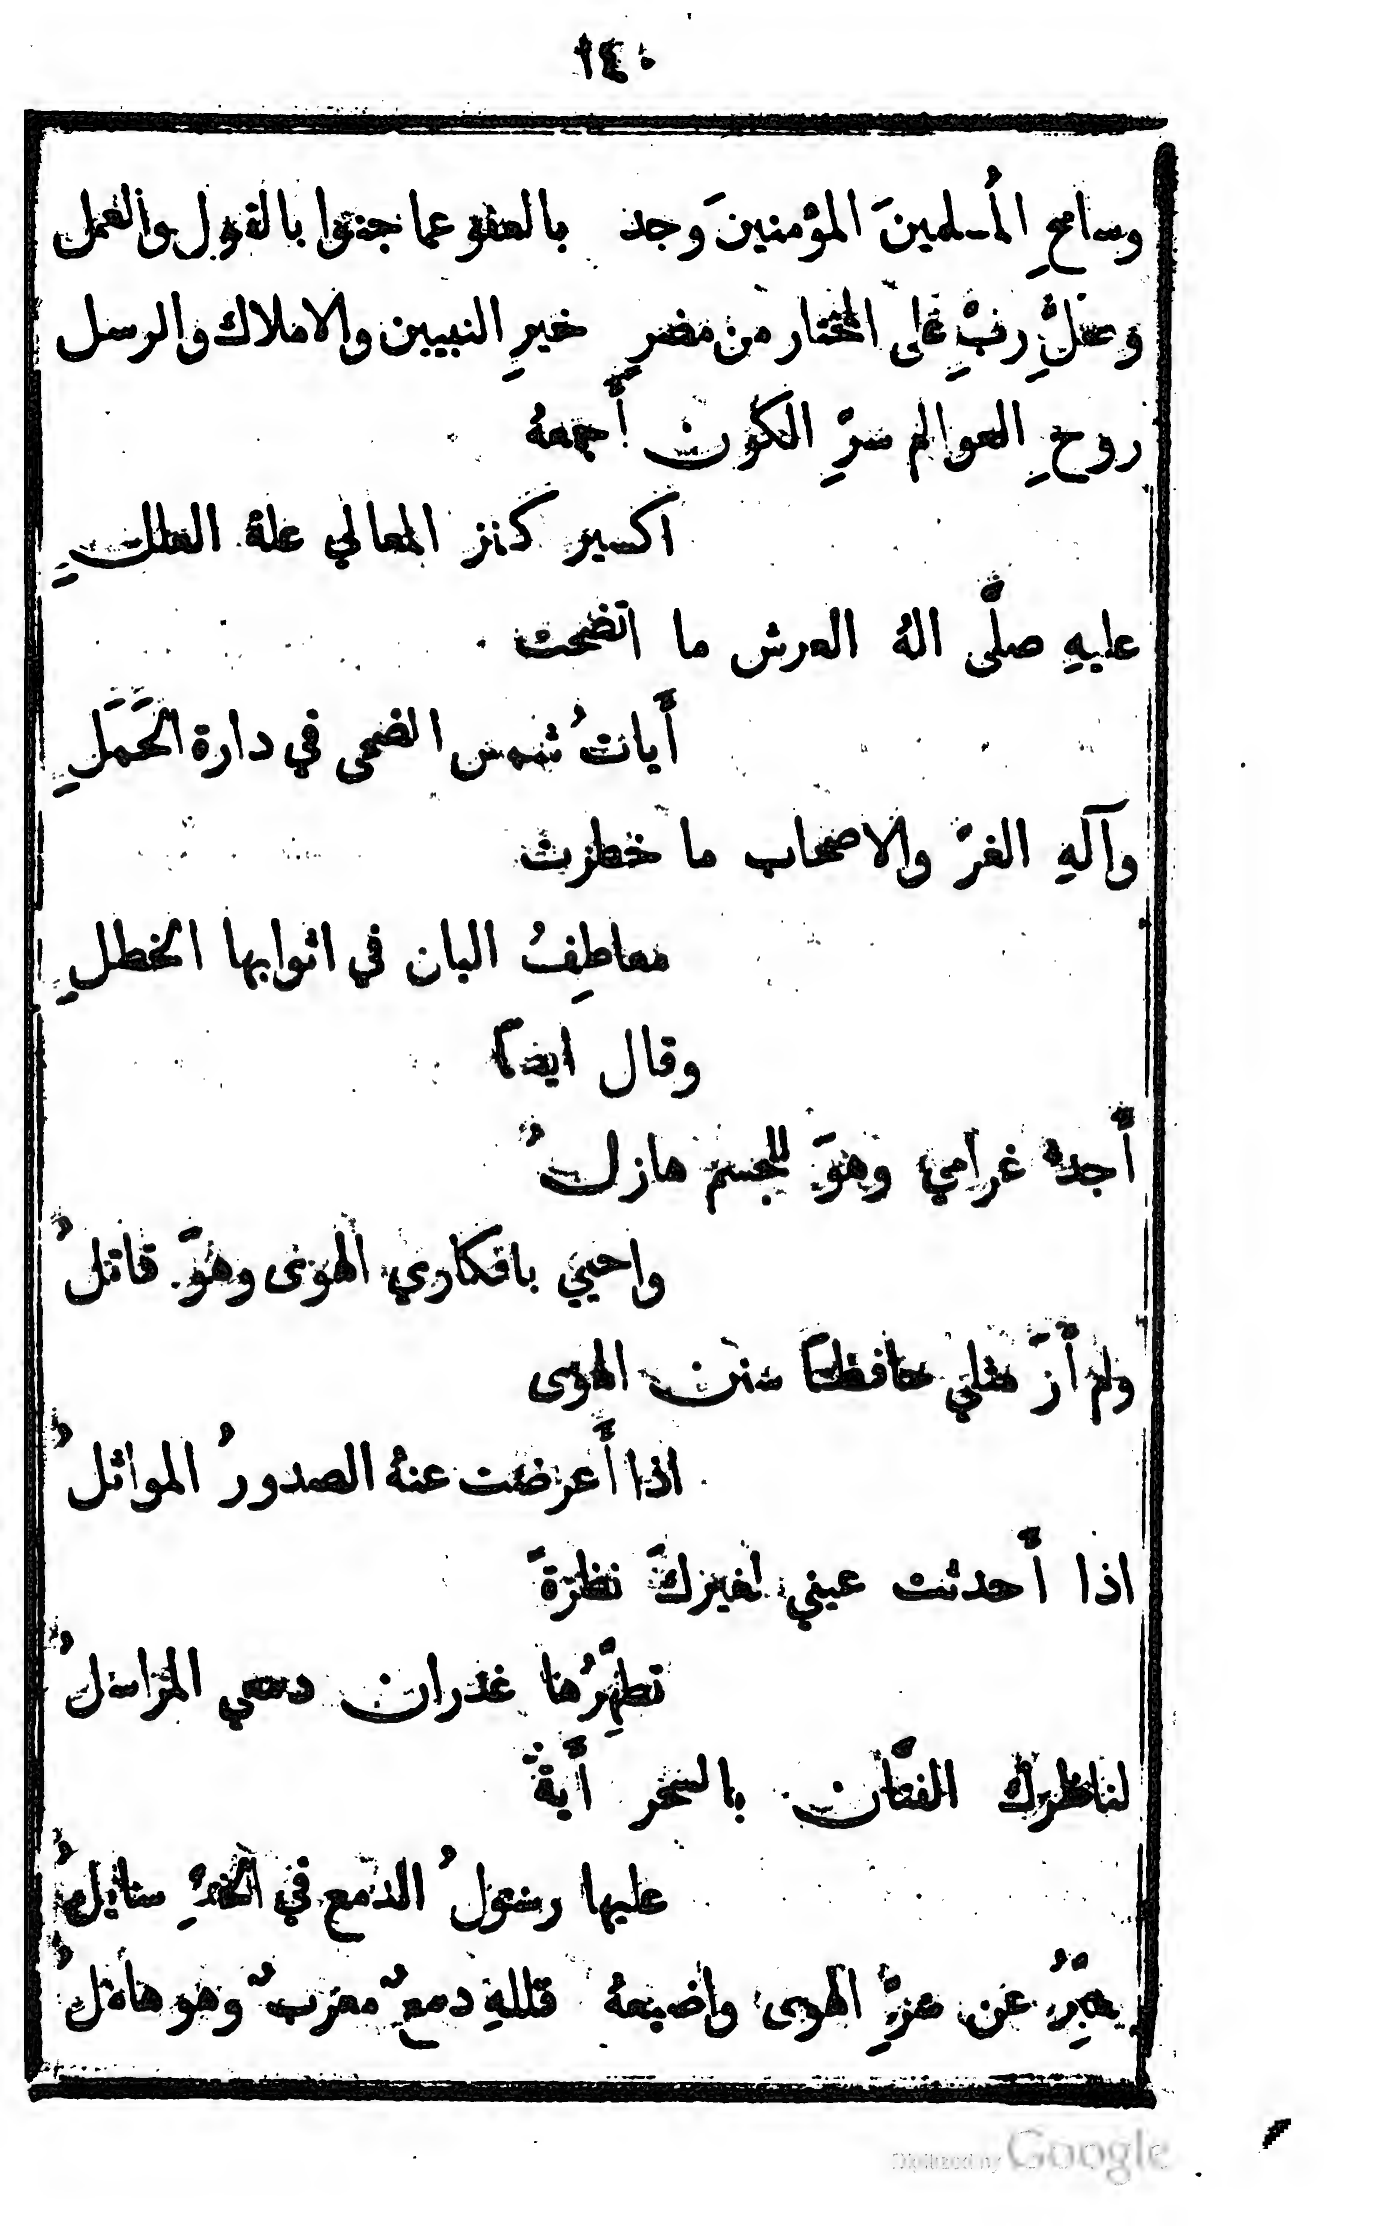 ١٤٠
وسامحِ المُسلمينَ المؤمنينَ وجد بالعفو عما جنوا بالقول والعمل
وصلِّ ربِّ على المختار من مضرٍ خيرِ النبيين والاملاك والرسل
روحِ العوالم سرِّ الكون أجمعهُ
اكسير كنز المعالي علة العللِ
عليهِ صلَّى الهُ العرش ما اتضحت
أَياتُ شمس الضحى في دارة الحَمَلِ
وآلهِ الغرّ والاصحاب ما خطرت
معاطِفُ البان في اثوابها الخطلِ
وقال ايضاً
أَجدهُ غرامي وهوَ للجسم هازلُ
واحيي بافكاري الهوى وهوَ قاتلُ
ولم أَرَ مثلي حافظاً سنن الهوى
اذا أَعرضت عنهُ الصدورُ المواثلُ
اذا أَحدثت عيني لغيركَ نظرةً
تطهِّرُها غدران دمعي المراسلُ
لناظرك الفتَّان بالسحر أَيةٌ
عليها رسولُ الدمع في الخدِّ سايلُ
يعبِّرُ عن سرِّ الهوى واضيعهُ فللهِ دمعٌ معربٌ وهو هاملُ
Digitized by Google